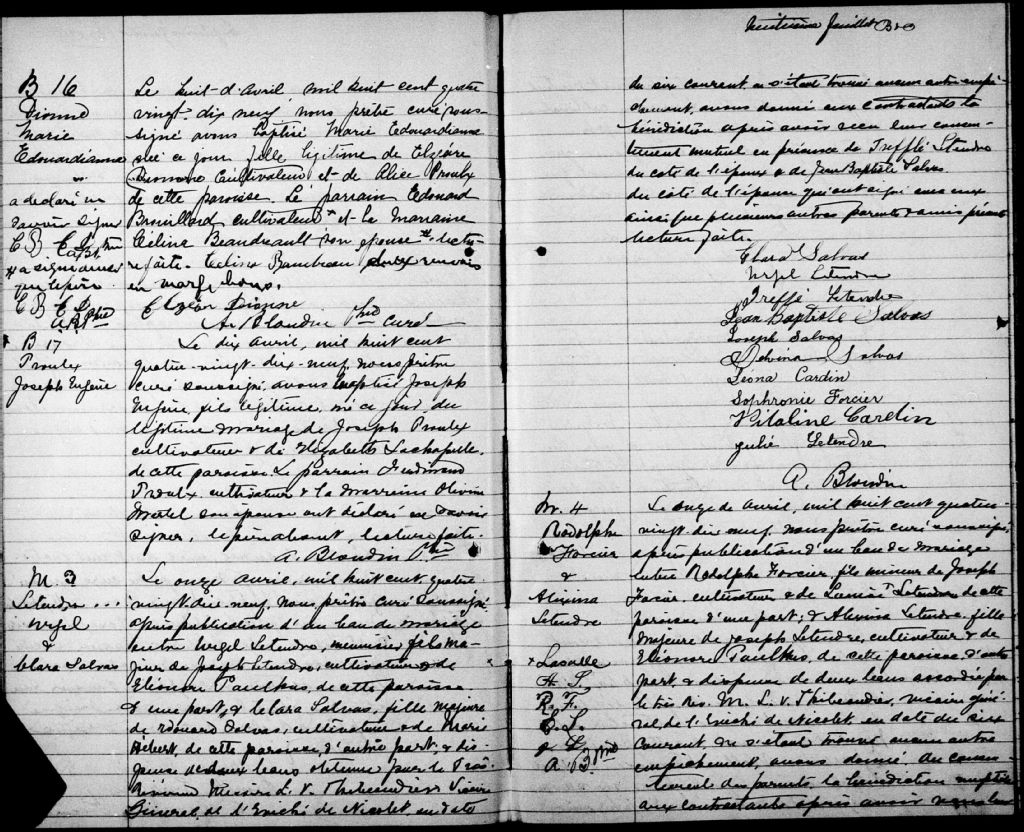 B 16
Dionne
Marie
Edouardianna
a déclaré ne
savoir signer
E B E D
* a signé aussi
que le père
E B E D
A. B. Ptre
Le huit d'avril mil huit cent quatre
vingt-dix neuf nous prêtre curé sous-
signé avons baptisé Marie Edouardianna
née ce jour fille légitime de Elzéare
Dionne Cultivateur et de Alice Proulx
de cette paroisse. Le parrain Edouard
Brouillard cultivateur et la Marraine
Céline Beaudreault son épouse * lectu-
re faite.
en marge bons.
Elzéar Dionne
A. Blondin Ptre curé
B 17
Proulx
Joseph Eugène
Le dix avril, mil huit cent
quatre-vingt-dix-neuf, nous prêtre
curé soussigné, avons baptisé Joseph
Eugène, fils légitime, né ce jour, du
légitime mariage de Joseph Proulx
cultivateur & de Elizabeth Lachapelle,
de cette paroisse. Le parrain Ferdinand
Proulx cultivateur & la marraine Olivine
Martel son épouse ont déclaré ne savoir
signer, le père absent, lecture faite.
A. Blondin Ptre
M. 3
Letendre ...
Urgel
&
Clara Salvas
Le onze avril, mil huit cent quatre
vingt dix neuf, nous prêtre curé soussigné,
après publication d'un ban de mariage
entre Urgel Letendre, meunier, fils ma-
jeur de Joseph Letendre, cultivateur & de
Eléonore Paulhus, de cette paroisse
d'une part, & Clara Salvas, fille majeure
de Edouard Salvas, cultivateur & de Marie
Hébert, de cette paroisse, d'autre part, & dis-
pense de deux bans obtenue par le Très
Révérend Messire L. V. Thibaudier Vicaire
Général, de l'Evêché de Nicolet, en date
huitième feuillet
du six courant, ne s'étant trouvé aucun autre empê-
chement, avons donné aux contractants la
bénédiction après avoir reçu leur consen-
tement mutuel en présence de Trefflé Letendre
du côté de l'époux & de Jean Baptiste Salvas
du côté de l'épouse qui ont signé avec eux
ainsi que plusieurs autres parents & amis présents
lecture faite.
Clara Salvas
Urgel Letendre
Treffé Letendre
Jean Baptiste Salvas
Joseph Salvas
Delvina Salvas
Léona Cardin
Sophronie Forcier
Vitaline Cardin
Julie Letendre
A. Blondin
M. 4
Rodolphe
Forcier
&
Alexina
Letendre
+ Lasalle
H. L.
R. F.
E. L.
J. L.
A. B. Ptre
Le onze de avril, mil huit cent quatre
vingt dix neuf, nous prêtre curé soussigné,
après publication d'un ban de mariage
entre Rodolphe Forcier, fils mineur de Joseph
Forcier, cultivateur & de Letendre de cette
paroisse d'une part; & Alexina Letendre, fille
majeure de Joseph Letendre, cultivateur & de
Eléonore Paulhus, de cette paroisse, d'autre
part, & dispense de deux bans accordée par
le très Rév. M. L. V. Thibaudier, vicaire géné-
ral de l'Evêché de Nicolet, en date du six
courant, ne s'étant trouvé aucun autre
empêchement, avons donné, du consen-
tement des parents, la bénédiction nuptiale
aux contractants après avoir reçu leur